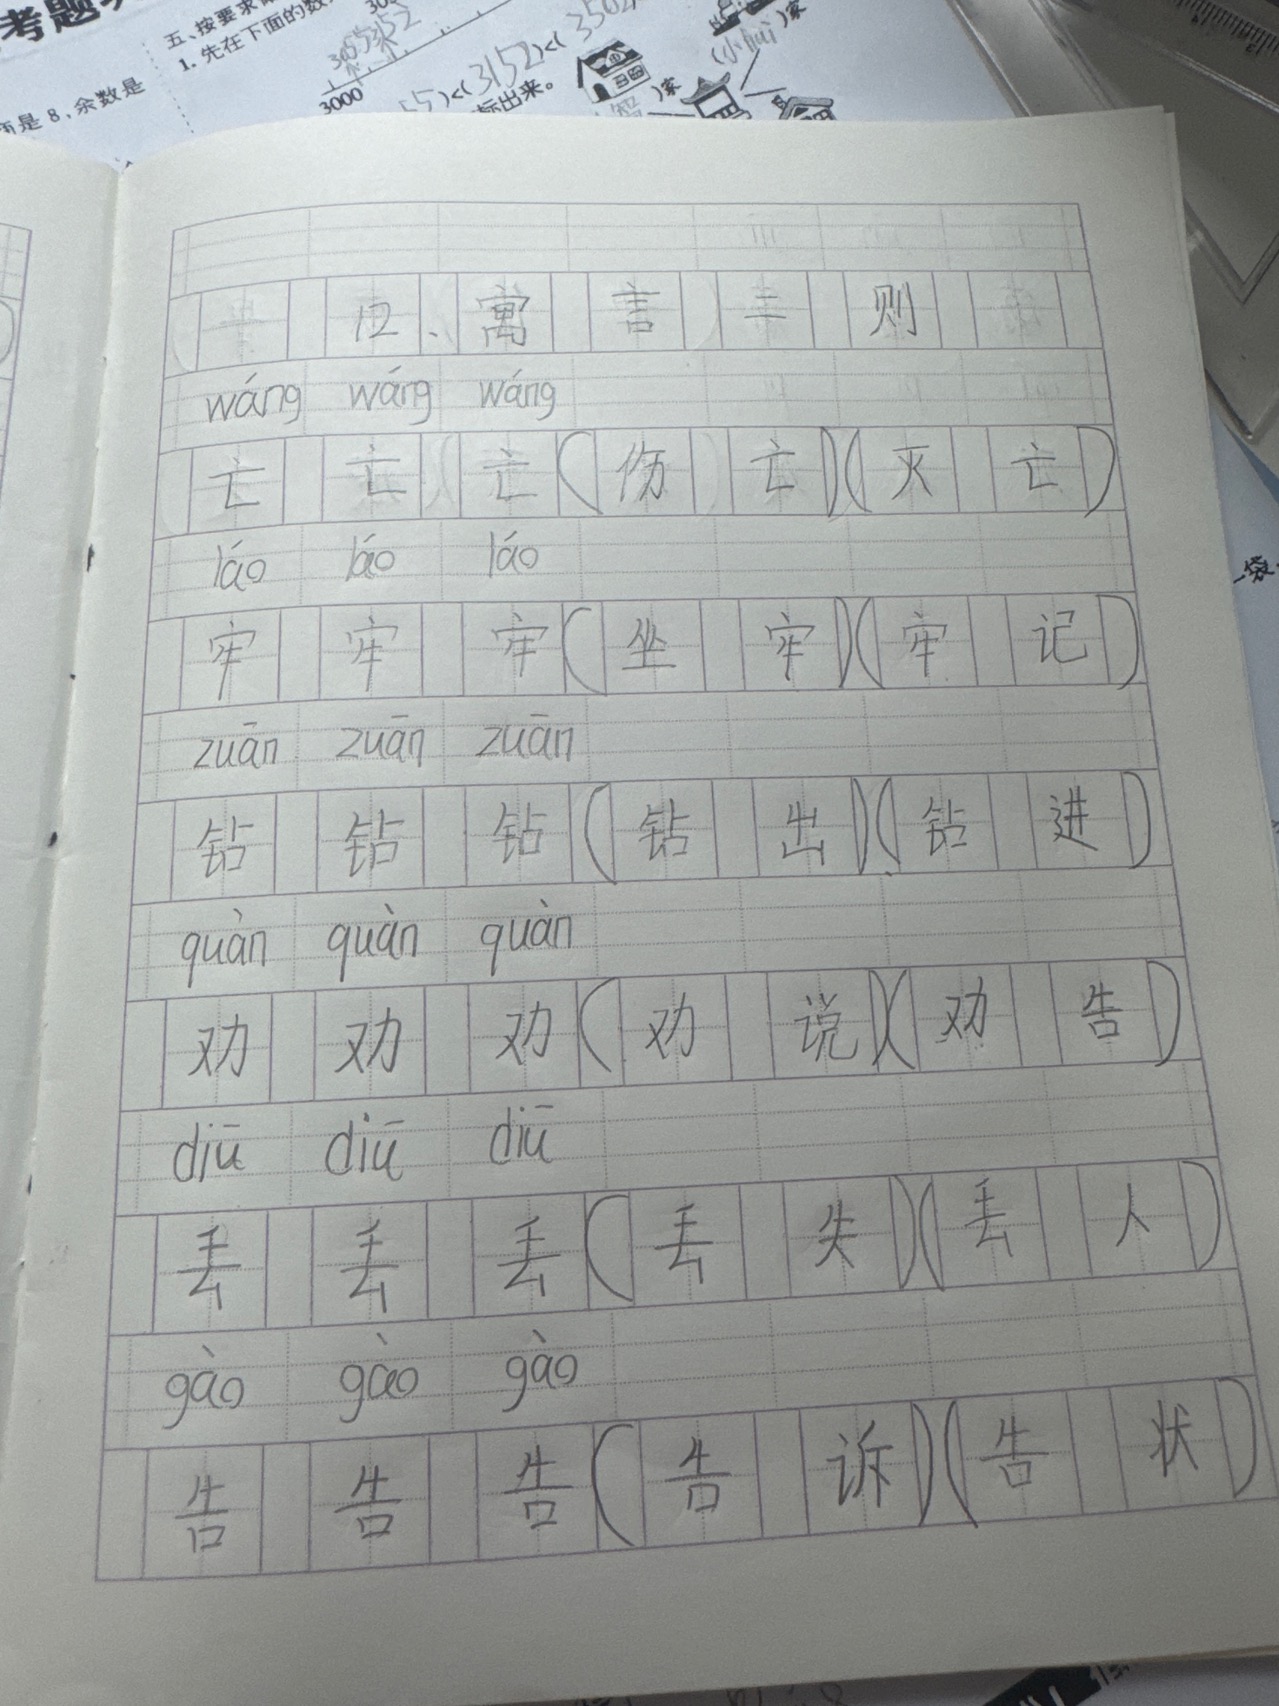 考题
五、按要求
1. 先在下面的数
面是 8，余数是
3000
)<( 3152 )<(
标出来。
)家
)家
12、寓言二则
wáng wáng wáng
亡亡亡(伤亡)(灭亡)
láo láo láo
牢牢牢(坐牢)(牢记)
zuān zuān zuān
钻钻钻(钻出)(钻进)
quàn quàn quàn
劝劝劝(劝说)(劝告)
diū diū diū
丢丢丢(丢失)(丢人)
gào gào gào
告告告(告诉)(告状)